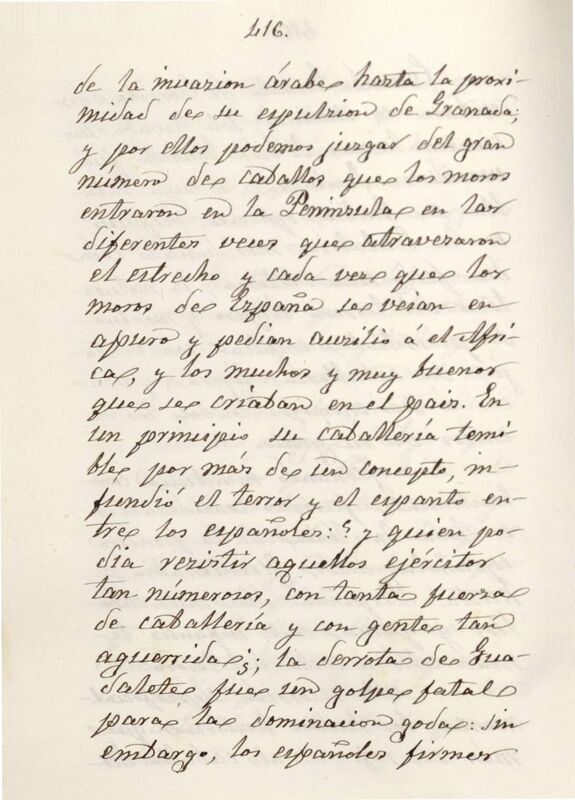 416.
de la invazion árabe hasta la proxi-
midad de su espulzion de Granada;
y por ellos podemos juzgar del gran
número de caballos que los moros
entraron en la Peninzula en las
diferentes veces que atravezaron
el estrecho y cada vez que los
moros de España se veian en
apuro y pedian auzilio á el Áfri-
ca, y los muchos y muy buenos
que se criaban en el pais. En
un principio su caballería temi-
ble por más de un concepto, in-
fundió el terror y el espanto en-
tre los españoles: ¿ y quien po-
dia rezistir aquellos ejércitos
tan númerosos, con tanta fuerza
de caballería y con gente tan
aguerrida?; la derrota de Gua-
dalete fue un golpe fatal
para la dominacion goda: sin
embargo, los españoles firmes